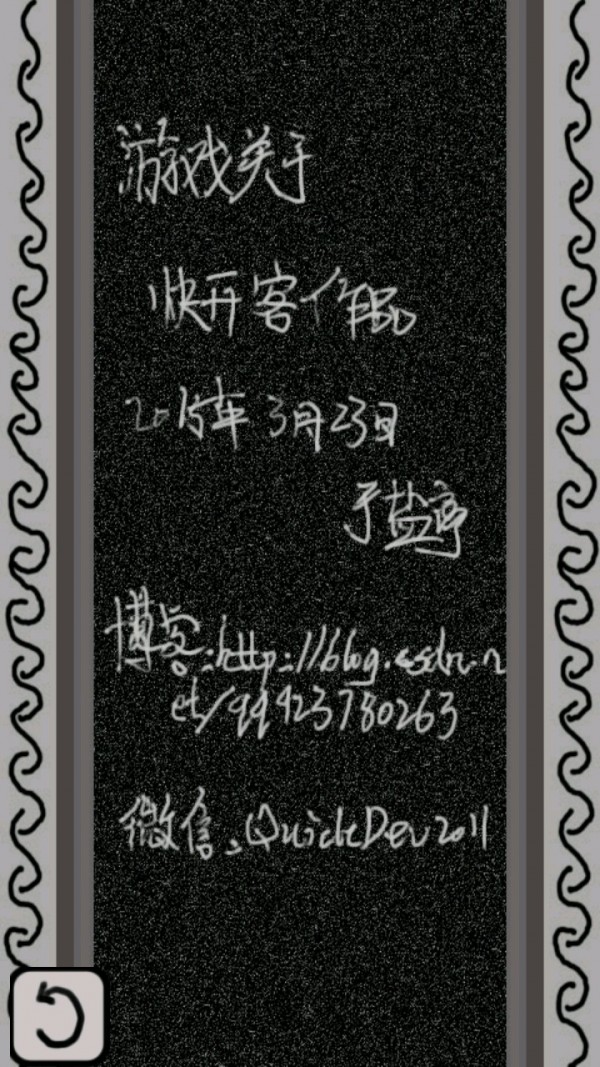 游戏关于
快开客作品
2015年3月23日
于盐亭
博客:http://blog.csdn.n
et/qq923780263
微信:QuickDev2011